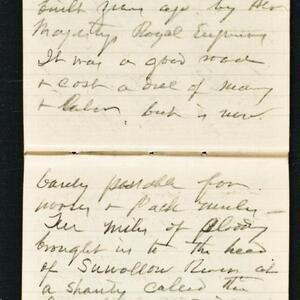 built years ago by Her
Majestys Royal Engineers
It was a good road
& cost a deal of money
& labor, but is now
barely passable for
horses & Pack mules —
Ten miles of plodding
brought us to the head
of Swwollow River at
a shanty called the